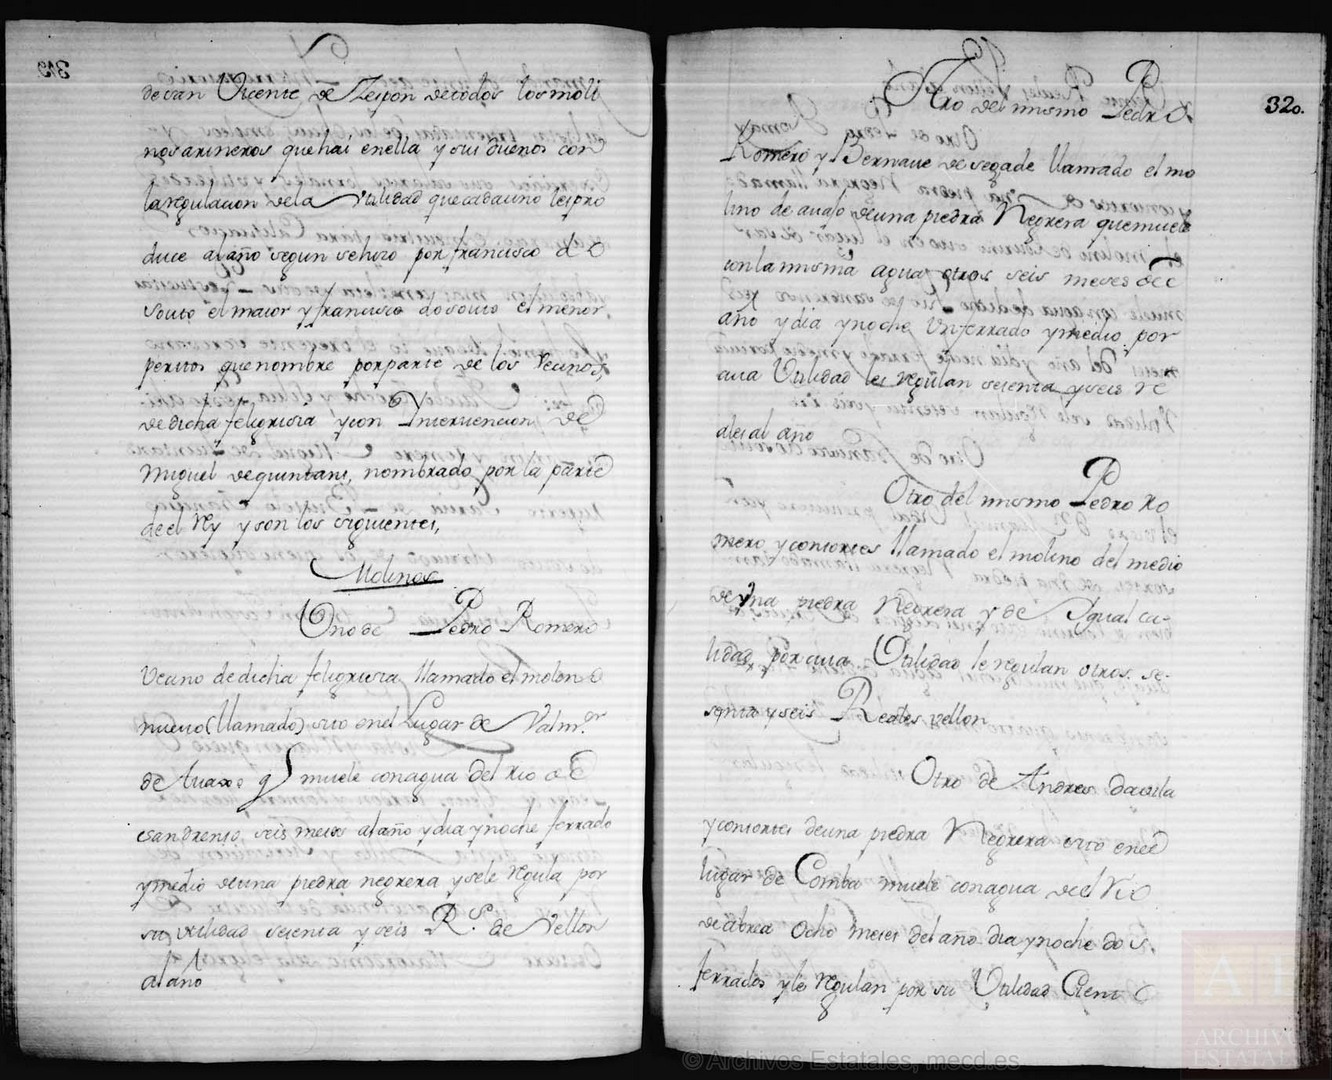 de san Vicente de Zespon de todos los moli
nos arineros que hai en ella y sus duenos con
la regulacion de la Utilidad que cada uno les pro
duce al año segun se hizo por francisco do
Souto el maior y francisco do souto el menor
peritos que nombre por parte de los Vecinos,
de dicha feligrisia y con Yntervencion de
Miguel de quintans, nombrado por la parte
de el Rey y son los siguientes,
Molinos
Uno de Pedro Romero
Vecino de dicha feligrisia llamado el molino
nuevo (llamado) sito en el Lugar de
de q.e muele con agua del rio de
seis meses al año y dia y noche ferrado
y medio de una piedra negrera y se le regula por
su utilidad setenta y seis R.s de Vellon
al año
320.
Otro del mismo Pedro
Romero y Bernave de segade llamado el mo
lino de avajo de una piedra Negrera que muele
con la misma agua otros seis meses de el
año y dia y noche Un ferrado y medio por
cuia Utilidad les regulan setenta y seis re
ales al año
Otro del mismo Pedro Ro
mero y consortes llamado el molino del medio
de una piedra Negrera y de Ygual ca-
lidad, por cuia Utilidad le regulan otros se-
tenta y seis Reales vellon
Otro de Andres davila
y consortes de una piedra Negrera sito en el
lugar de Comba muele con agua de el rio
de abrea Ocho meses del año dia y noche dos
ferrados y les regulan por su Utilidad Cient
© Archivos Estatales, mecd.es
ARCHIVOS
ESTATALES